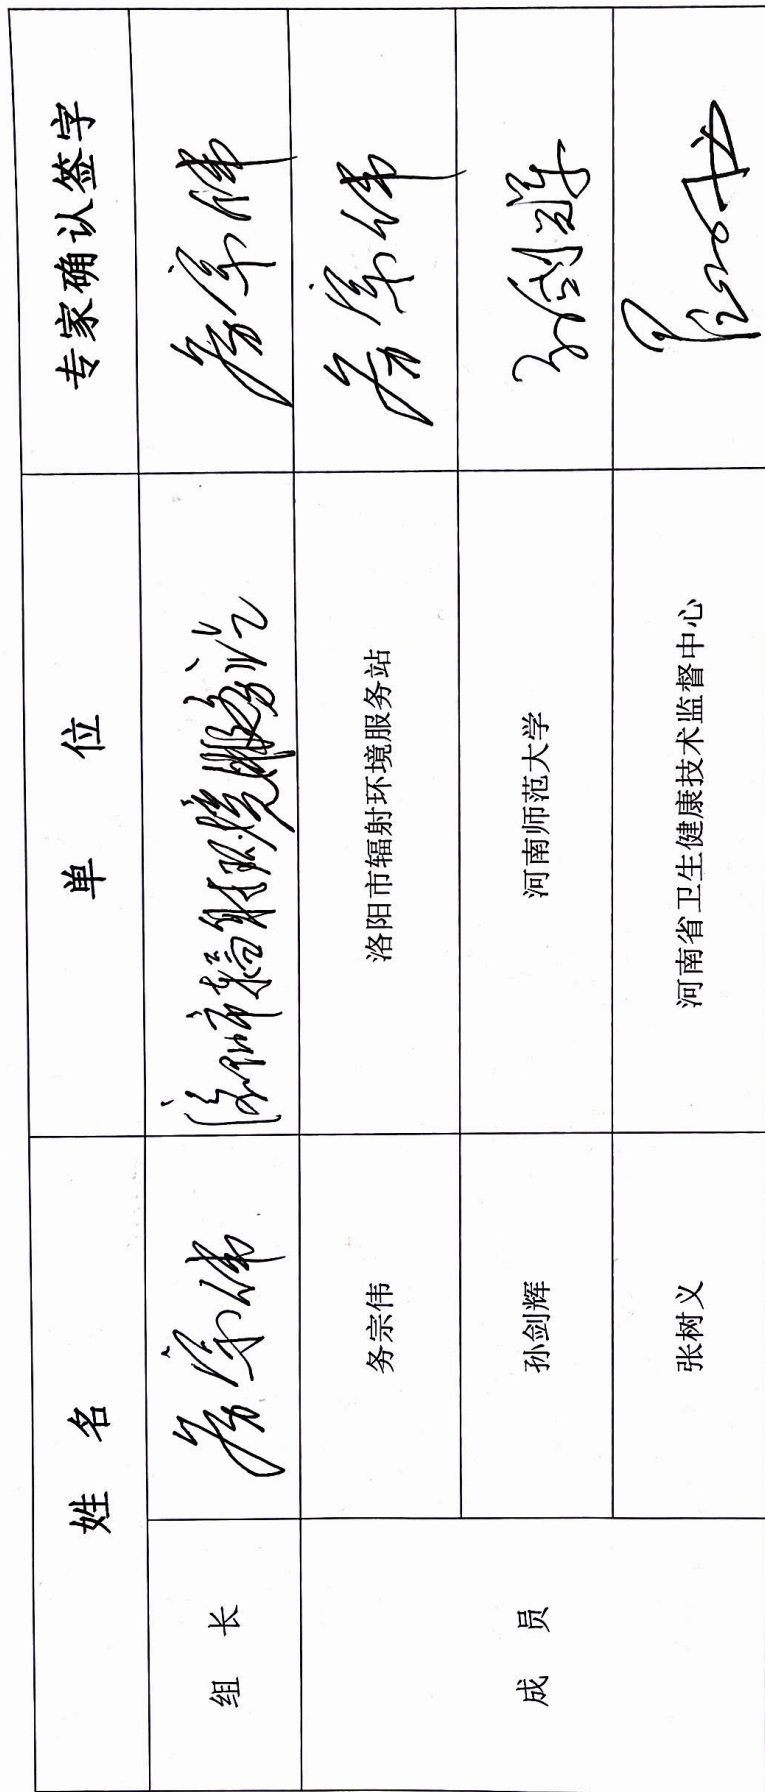 姓 名 单 位 专家确认签字
组 长 务宗伟 洛阳市辐射环境服务站 务宗伟
成 员
务宗伟 洛阳市辐射环境服务站 务宗伟
孙剑辉 河南师范大学 孙剑辉
张树义 河南省卫生健康技术监督中心